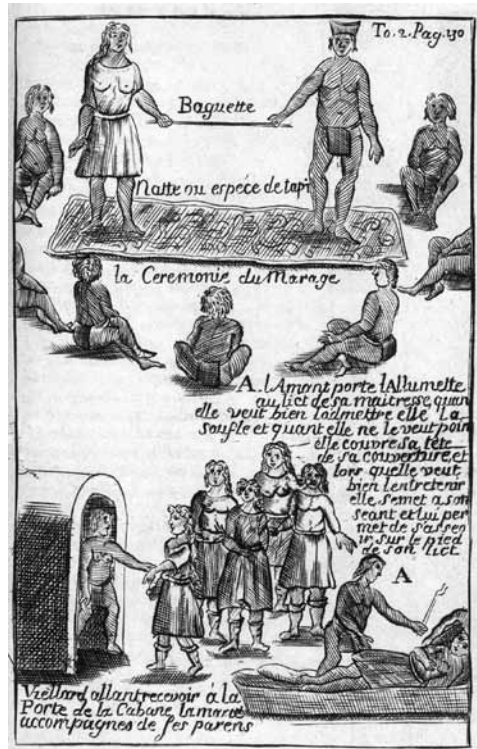 To. 2. Pag. 130
Baguette
Natte ou espéce de tapi
la Ceremonie du Marage
A. lAmant porte lAllumette
au lict de sa maitresse quan
elle veut bien ladmettre elle la
soufle et quant elle ne le veut poin
elle couvre sa tête
de sa couverture, et
lors quelle veut
bien lentretenir
elle se met a son
seant et lui per
met de sasseo
ir sur le pied
de son lict
A
Viellard allant recevoir á la
Porte de la Cabane lamarié
accompagnés de ses parens